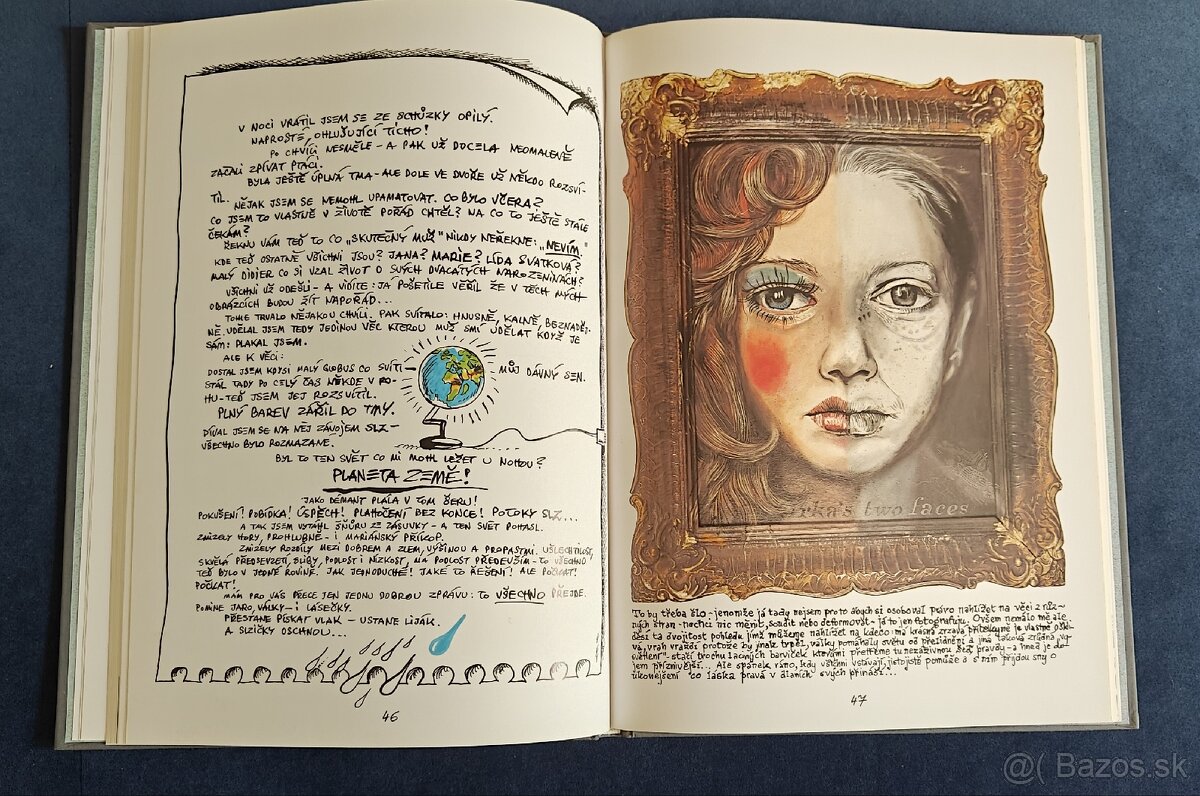 V NOCI VRÁTIL JSEM SE ZE SCHŮZKY OPILÝ.
NAPROSTÉ, OHLUŠUJÍCÍ TICHO!
PO CHVÍLI NESMĚLE - A PAK UŽ DOCELA NEOMALENĚ
ZAČALI ZPÍVAT PTÁCI.
BYLA JEŠTĚ ÚPLNÁ TMA - ALE DOLE VE DVOŘE UŽ NĚKDO ROZSVÍ-
TIL.
NĚJAK JSEM SE NEMOHL UPAMATOVAT. CO BYLO VČERA?
CO JSEM TO VLASTNĚ V ŽIVOTĚ POŘÁD CHTĚL? NA CO TO JEŠTĚ STÁLE
ČEKÁM?
ŘEKNU VÁM TEĎ TO CO „SKUTEČNÝ MUŽ" NIKDY NEŘEKNE: „NEVÍM."
KDE TEĎ OSTATNĚ VŠICHNI JSOU? JANA? MARIE? LÍDA SVATKOVÁ?
MALÝ DIDIER CO SI VZAL ŽIVOT O SVÝCH DVACÁTÝCH NAROZENINÁCH?
VŠICHNI UŽ ODEŠLI - A VIDÍTE: JÁ POŠETILE VĚŘIL ŽE V TĚCH MÝCH
OBRÁZCÍCH BUDOU ŽÍT NAPOŘÁD...
TOHLE TRVALO NĚJAKOU CHVÍLI. PAK SVÍTALO: HNUSNĚ, KALNĚ, BEZNADĚJ-
NĚ. UDĚLAL JSEM TEDY JEDINOU VĚC KTEROU MUŽ SMÍ UDĚLAT KDYŽ JE
SÁM: PLAKAL JSEM.
ALE K VĚCI:
DOSTAL JSEM KDYSI MALÝ GLOBUS CO SVÍTÍ - MŮJ DÁVNÝ SEN.
STÁL TADY PO CELÝ ČAS NĚKDE V RO-
HU - TEĎ JSEM JEJ ROZSVÍTIL.
PLNÝ BAREV ZÁŘIL DO TMY.
DÍVAL JSEM SE NA NĚJ ZÁVOJEM SLZ -
VŠECHNO BYLO ROZMAZANÉ.
BYL TO TEN SVĚT CO MI MOHL LEŽET U NOHOU?
PLANETA ZEMĚ!
JAKO DÉMANT PLÁLA V TOM ŠERU!
POKUŠENÍ! POBÍDKA! ÚSPĚCH! PLAHOČENÍ BEZ KONCE! POTOKY SLZ...
A TAK JSEM VYTÁHL ŠŇŮRU ZE ZÁSUVKY - A TEN SVĚT POHASL.
ZMIZELY HORY, PROHLUBNĚ - I MARIÁNSKÝ PŘÍKOP.
ZMIZELY ROZDÍLY MEZI DOBREM A ZLEM, VÝŠINOU A PROPASTMI. UŠLECHTILOST,
SKVĚLÁ PŘEDSEVZETÍ, SLIBY, PODLOST I NÍZKOST, NA PODLOST PŘEDEVŠÍM - TO VŠECHNO
TEĎ BYLO V JEDNÉ ROVINĚ. JAK JEDNODUCHÉ! JAKÉ TO ŘEŠENÍ! ALE POČKAT!
POČKAT!
MÁM PRO VÁS PŘECE JEN JEDNU DOBROU ZPRÁVU: TO VŠECHNO PŘEJDE.
POMINE JARO, VÁLKY - I LÁSEČKY.
PŘESTANE PÍSKAT VLAK - USTANE LIJÁK.
A SLZIČKY OSCHNOU...
46
rka's two faces
To by třeba šlo - jenomže já tady nejsem proto abych si osoboval právo nahlížet na věci z růz-
ných stran - nechci nic měnit, soudit nebo deformovat - já to jen fotografuju. Ovšem nemálo mě
děsí ta dvojitost pohledu jímž můžeme nahlížet na kdeco: má krásná zrzavá přítelkyně je vlastně
vrah vraždí protože by jinak trpěl, války pomáhaly světu od přelidnění a jiná taková zrůdná „vy-
světlení" - stačí trochu laciných barviček kterými přetřeme tu nezáživnou šeď pravdy - a hned je do-
jem příznivější... Ale spánek ráno, kdy všichni vstávají, jistojistě pomůže a s ním přijdou sny o
ukonejšení "co láska pravá v dlaních svých přináší..."
47
@( Bazos.sk